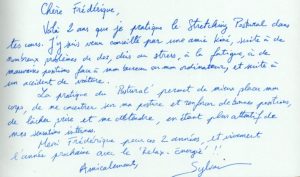 Chère Frédérique,
Voilà 2 ans que je pratique le Stretching Postural dans
tes cours. J'y suis venue conseillée par une amie kiné, suite à de
nombreux problèmes de dos, dûs au stress, à la fatigue, à de
mauvaises postures face à mon bureau ou mon ordinateur, et suite à
un accident de voiture.
La pratique du "Postural" permet de mieux placer mon
corps, de me concentrer sur ma posture et renforcer de bonnes positions,
de lâcher prise et me détendre, en étant plus attentif de
mes sensations internes.
Merci Frédérique pour ces 2 années, et vivement
l'année prochaine avec le "Relax-Energie" !!
Amicalement,
Sylvie